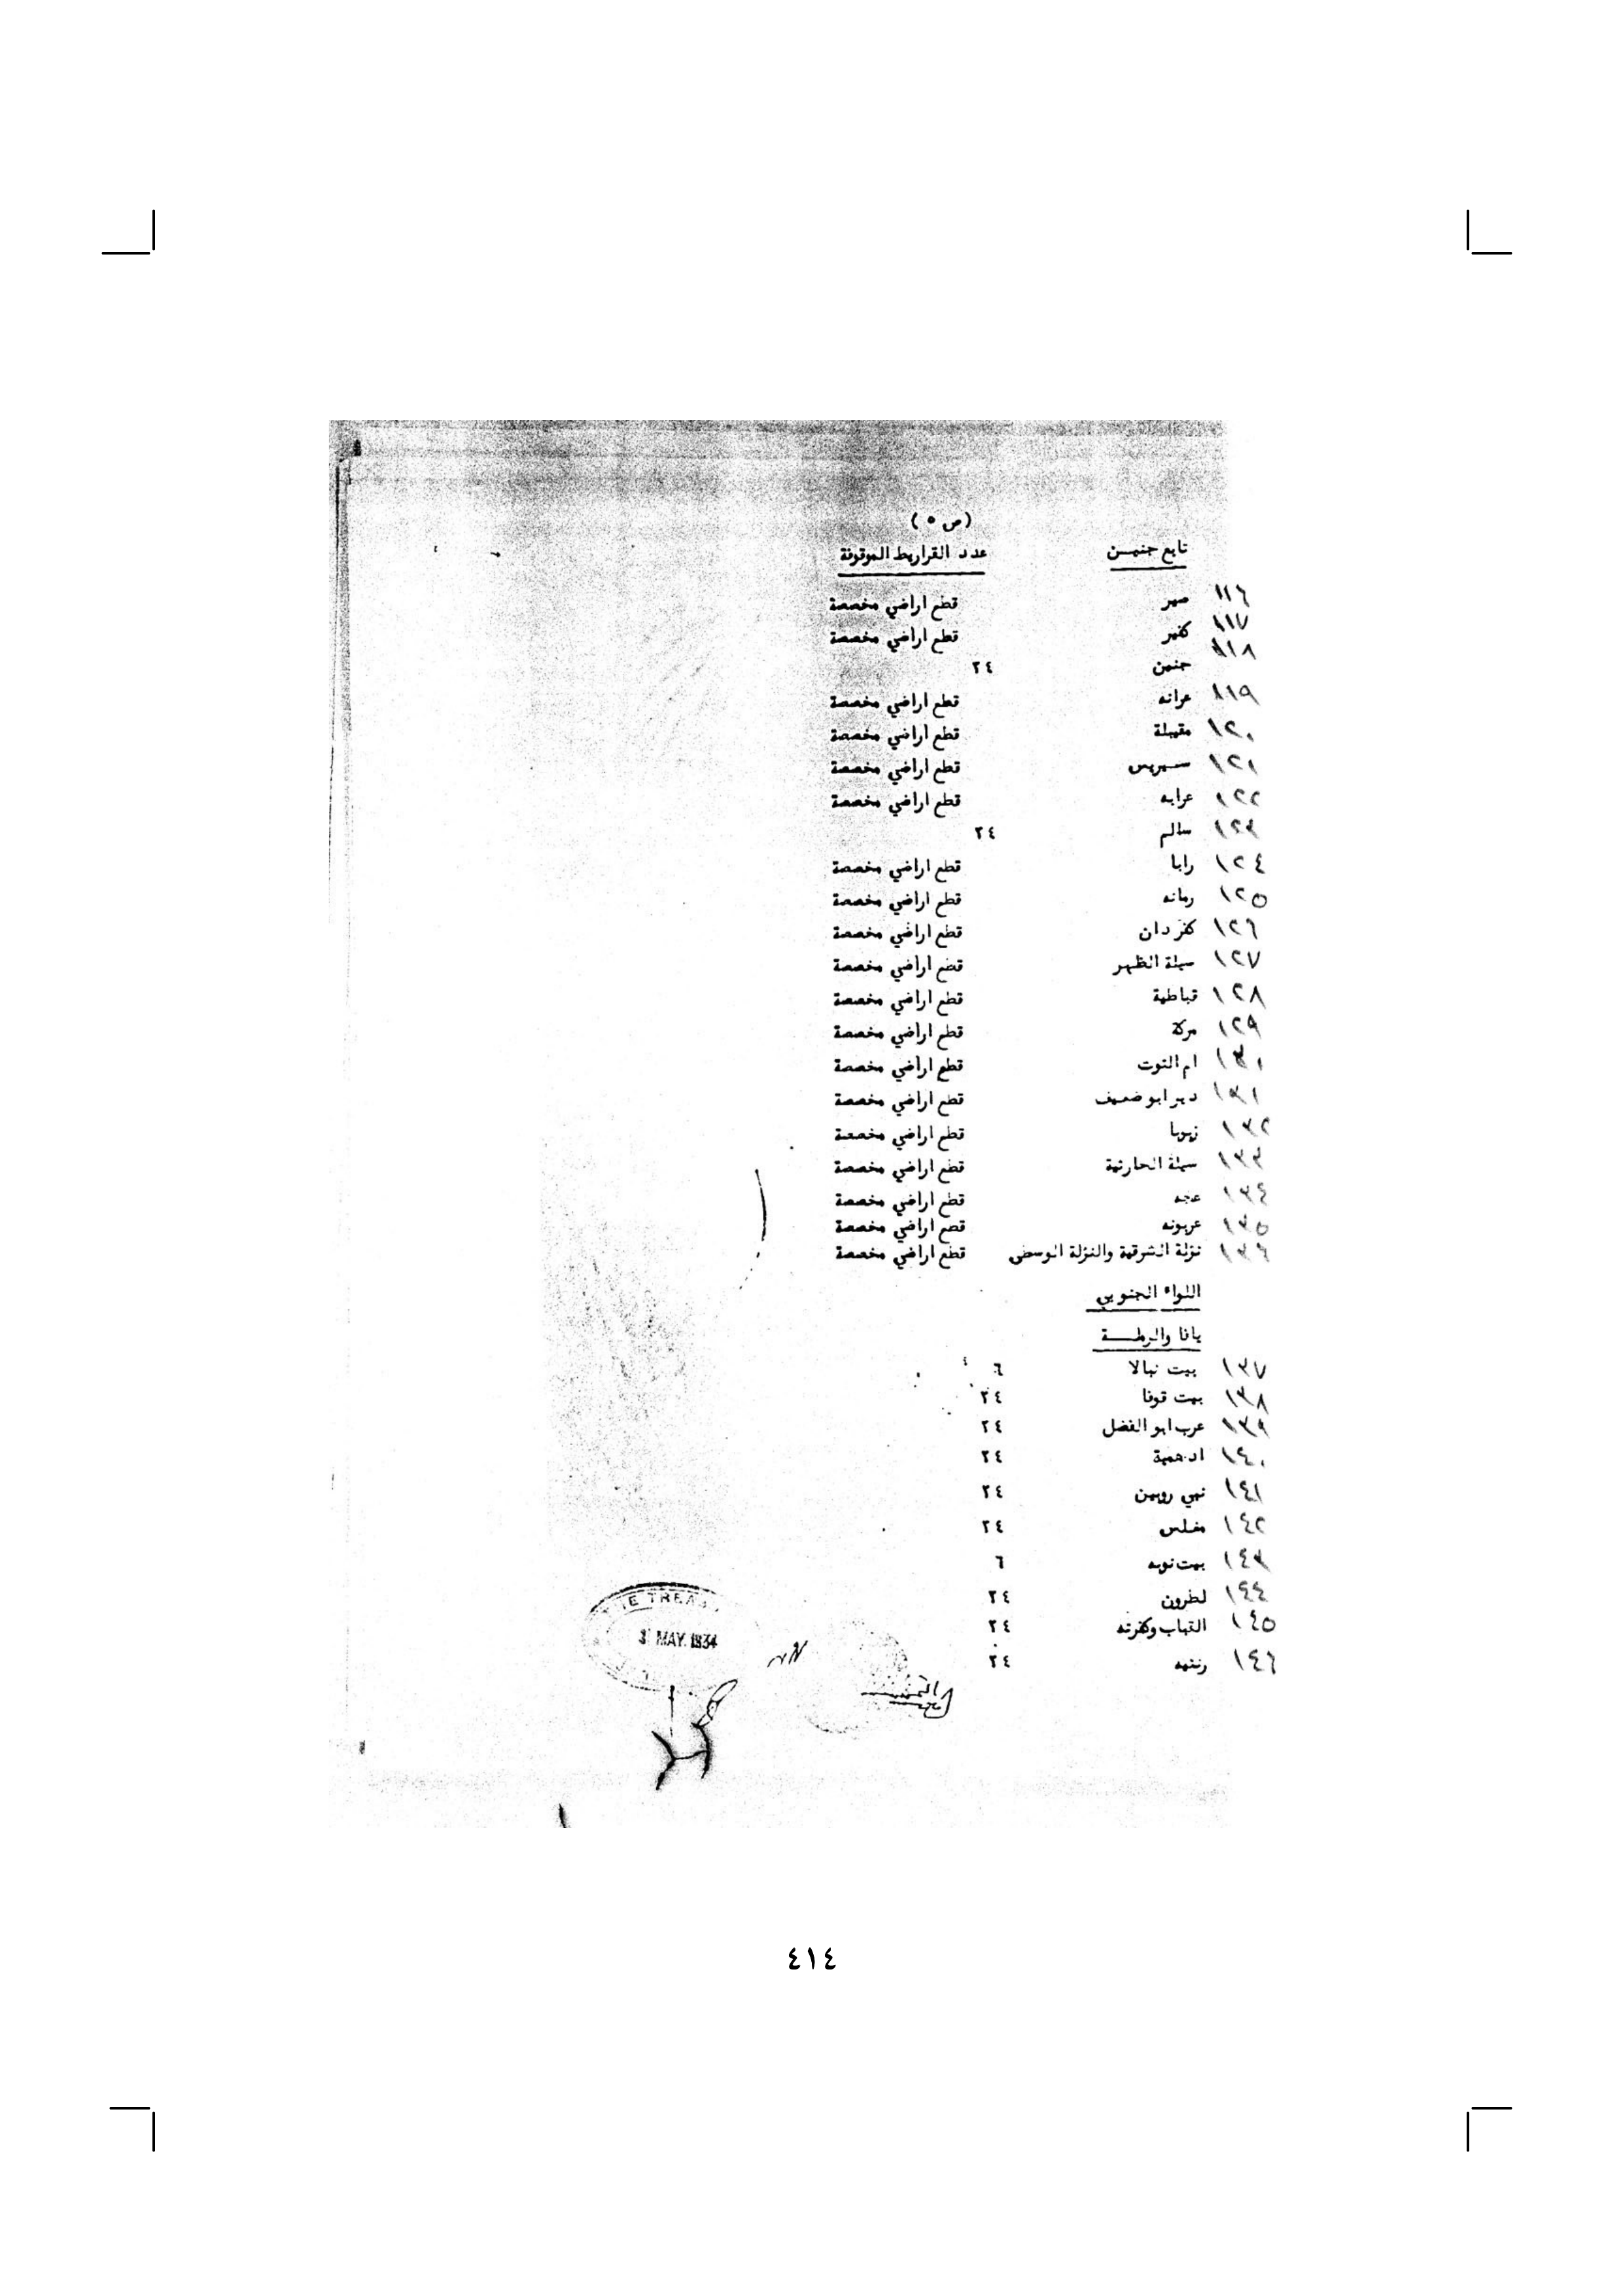 (ص ٥)
تابع جنين عدد القراريط الموقوفة
١١٦ صير قطع اراضي مخصصة
١١٧ كفير قطع اراضي مخصصة
١١٨ جنين ٢٤
١١٩ عرانه قطع اراضي مخصصة
١٢٠ مقيبلة قطع اراضي مخصصة
١٢١ سيريس قطع اراضي مخصصة
١٢٢ عرابه قطع اراضي مخصصة
١٢٣ سالم ٢٤
١٢٤ رابا قطع اراضي مخصصة
١٢٥ رمانه قطع اراضي مخصصة
١٢٦ كفر دان قطع اراضي مخصصة
١٢٧ سيلة الظهر قطع اراضي مخصصة
١٢٨ قباطية قطع اراضي مخصصة
١٢٩ مركة قطع اراضي مخصصة
١٣٠ ام التوت قطع اراضي مخصصة
١٣١ دير ابو ضعيف قطع اراضي مخصصة
١٣٢ زبوبا قطع اراضي مخصصة
١٣٣ سيلة الحارثية قطع اراضي مخصصة
١٣٤ عجه قطع اراضي مخصصة
١٣٥ عربونه قطع اراضي مخصصة
١٣٦ نزلة الشرقية والنزلة الوسطى قطع اراضي مخصصة
اللواء الجنوبي
يافا والرملة
١٣٧ بيت نبالا ٦
١٣٨ بيت قوفا ٢٤
١٣٩ عرب ابو الفضل ٢٤
١٤٠ ادهمية ٢٤
١٤١ نبي روبين ٢٤
١٤٢ مغلس ٢٤
١٤٣ بيت نوبه ٦
١٤٤ لطرون ٢٤
١٤٥ القباب وكفرته ٢٤
١٤٦ رنتيه ٢٤
MAY. 1934
٤١٤